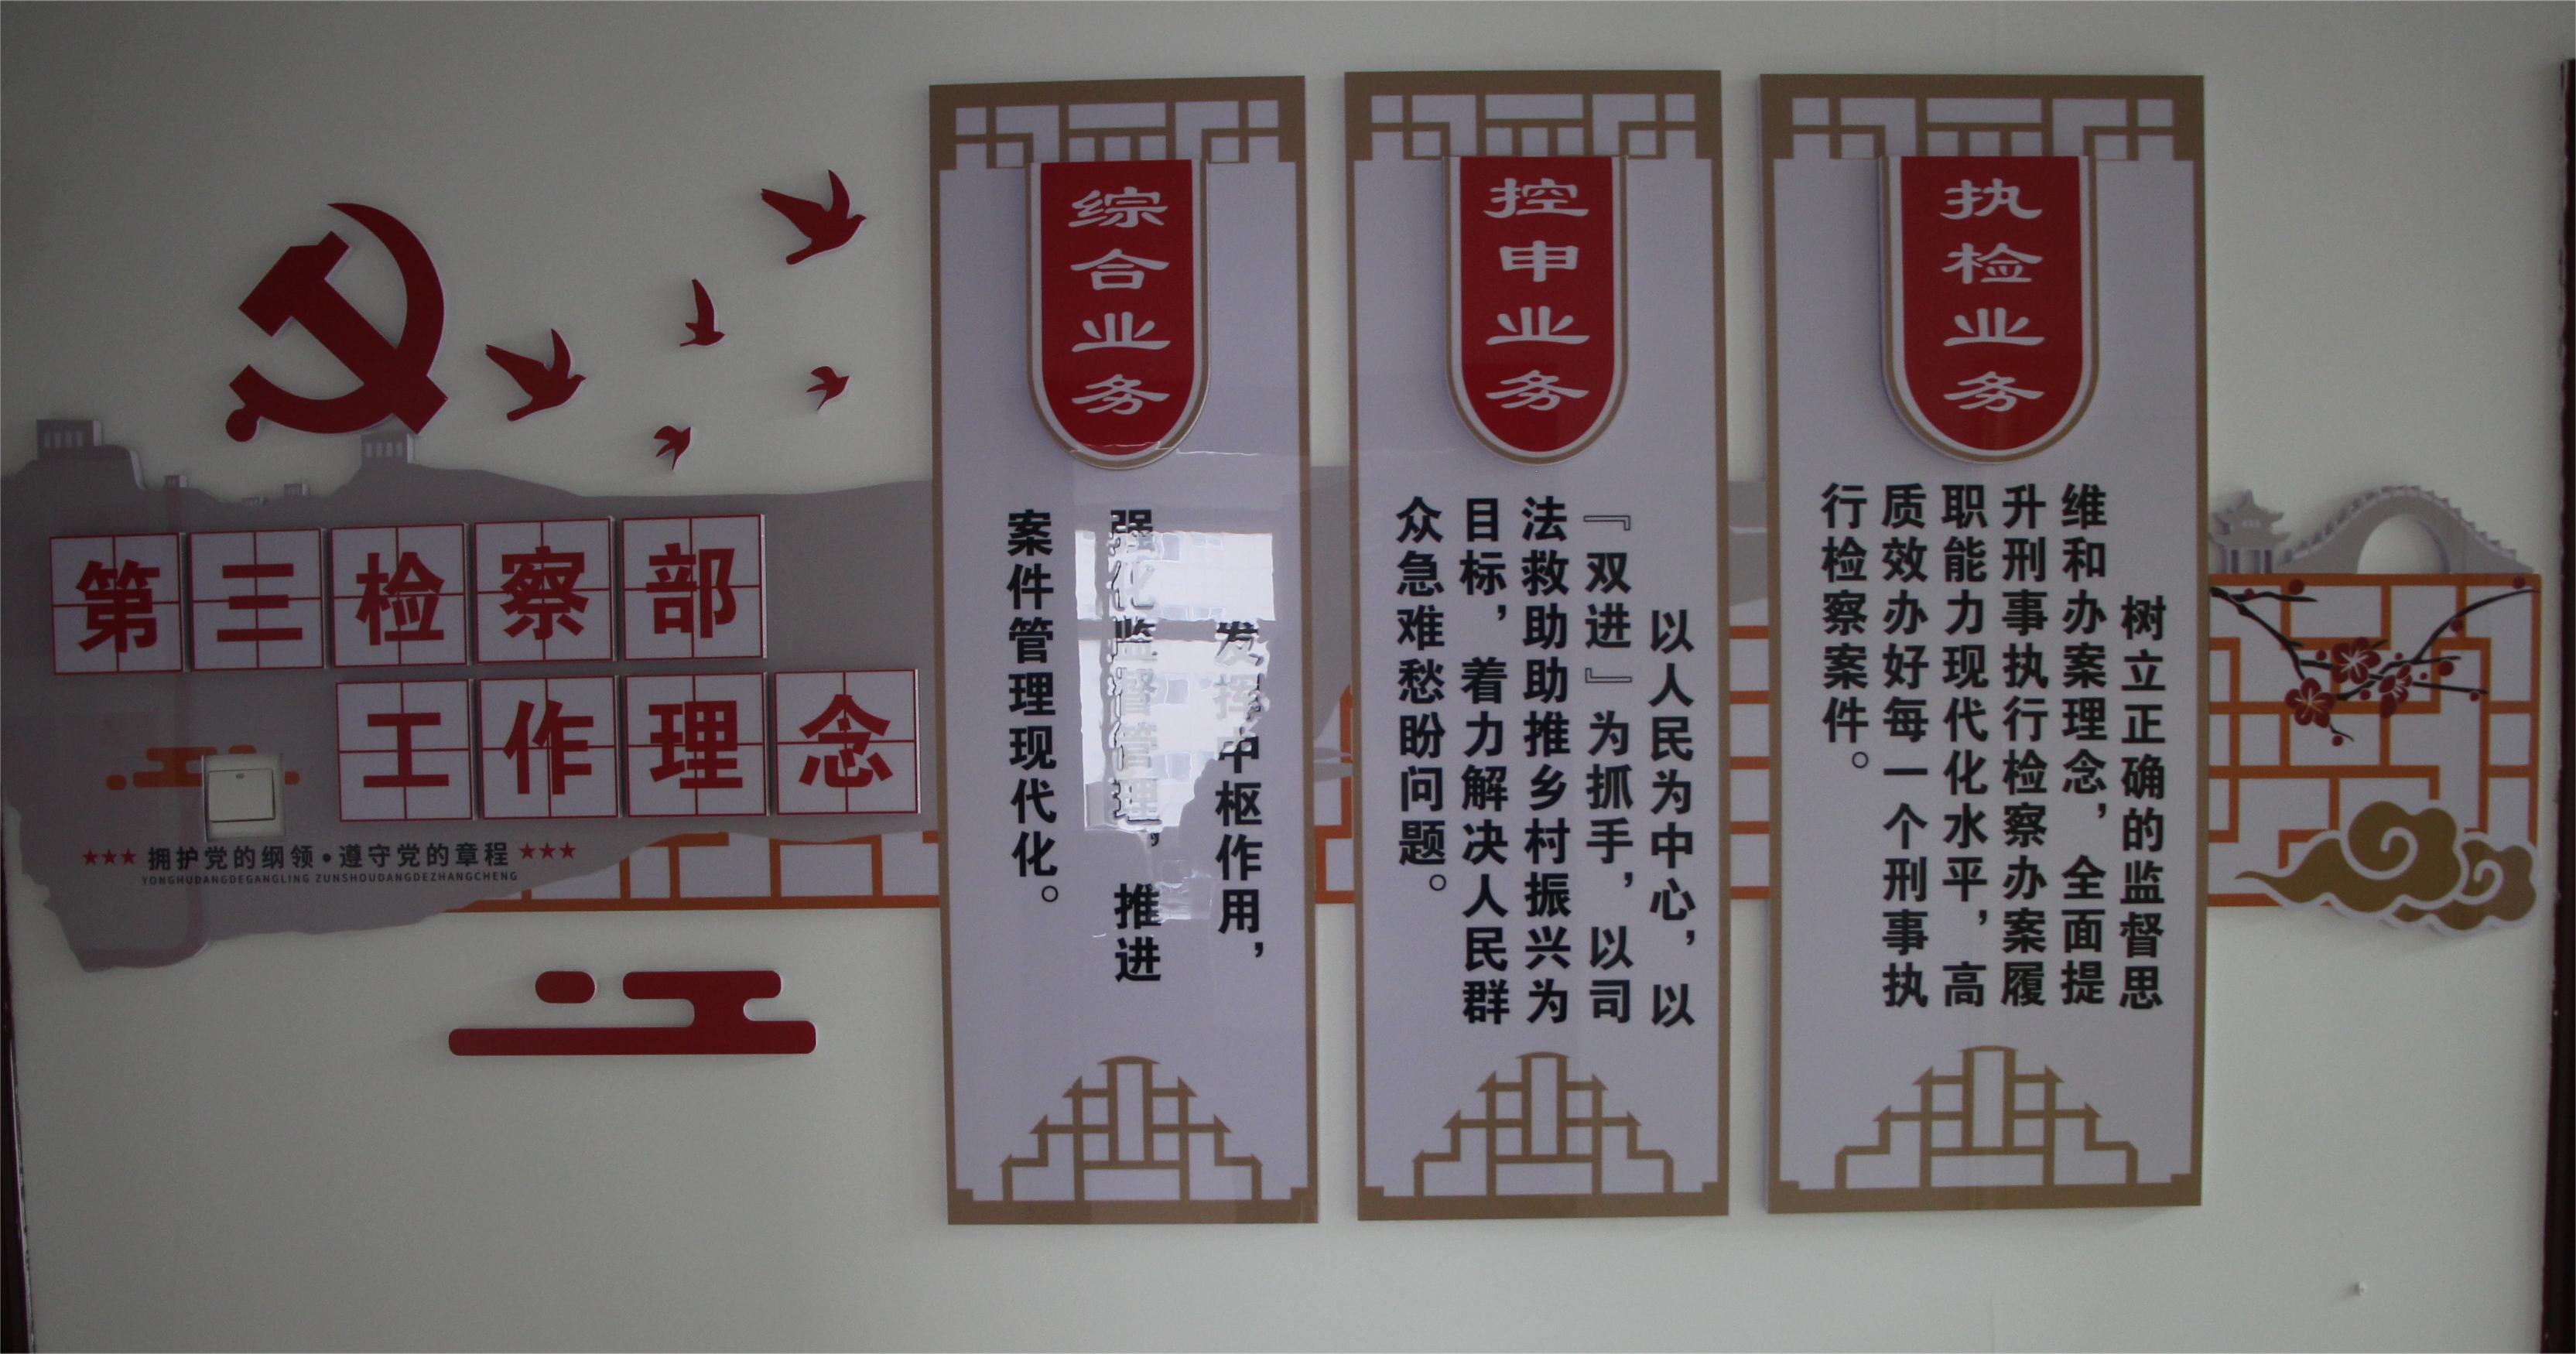 第三检察部
工作理念
拥护党的纲领·遵守党的章程
YONGHUDANGDEGANGLING ZUNSHOUDANGDEZHANGCHENG
综合业务
发挥中枢作用，
强化监督管理，推进
案件管理现代化。
控申业务
以人民为中心，以
『双进』为抓手，以司
法救助助推乡村振兴为
目标，着力解决人民群
众急难愁盼问题。
执检业务
树立正确的监督思
维和办案理念，全面提
升刑事执行检察办案履
职能力现代化水平，高
质效办好每一个刑事执
行检察案件。